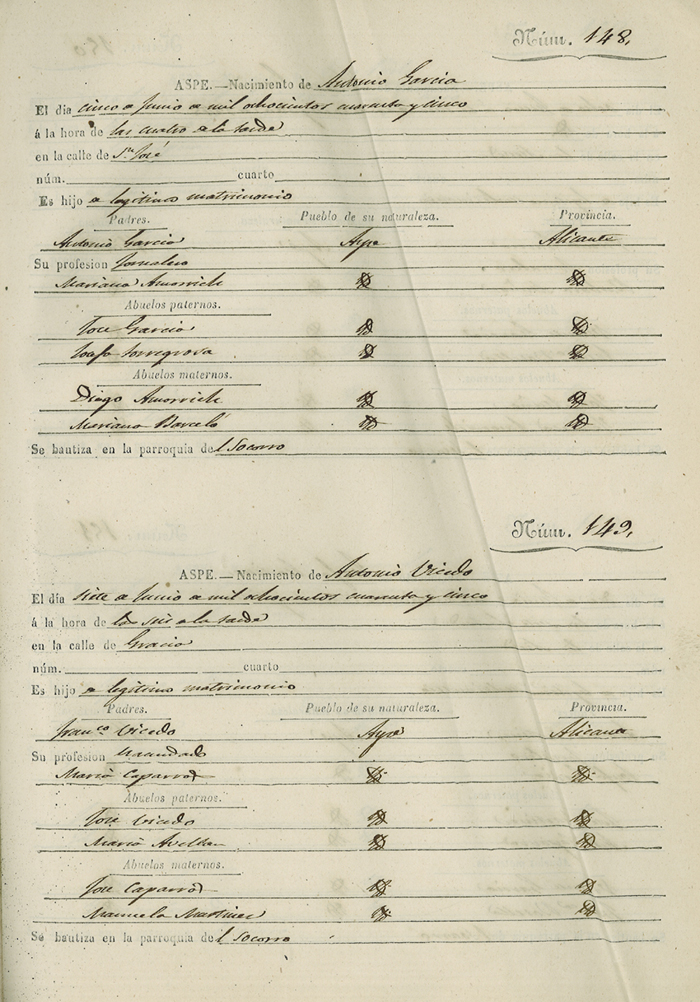 Núm. 148.
ASPE.—Nacimiento de Antonio Garcia
El día cinco de Junio de mil ochocientos cuarenta y cinco
á la hora de las cuatro de la tarde
en la calle de Sn. José
núm. cuarto
Es hijo de legitimo matrimonio
Padres. Pueblo de su naturaleza. Provincia.
Antonio Garcia Aspe Alicante
Su profesion Jornalero
Mariana Amorrich
Abuelos paternos.
Jose Garcia
Torregrosa
Abuelos maternos.
Diego Amorrich
Mariana Barceló
Se bautiza en la parroquia del Socorro
Núm. 149.
ASPE.—Nacimiento de Antonio Vicedo
El día siete de Junio de mil ochocientos cuarenta y cinco
á la hora de las seis de la tarde
en la calle de Gracia
núm. cuarto
Es hijo de legitimo matrimonio
Padres. Pueblo de su naturaleza. Provincia.
Franco. Vicedo Aspe Alicante
Su profesion
Maria Caparros
Abuelos paternos.
Jose Vicedo
Maria Avellan
Abuelos maternos.
Jose Caparros
Manuela Martinez
Se bautiza en la parroquia del Socorro